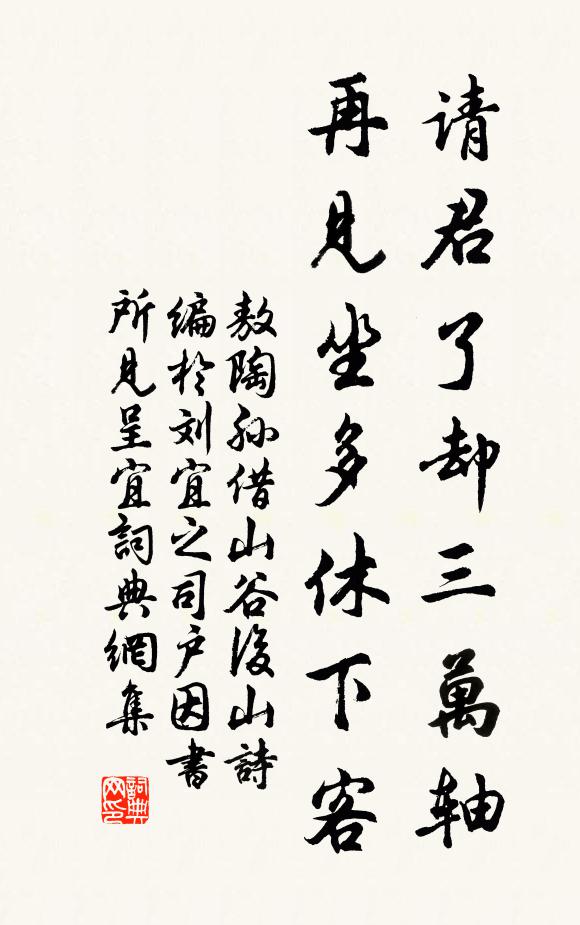 请君了却三萬轴
再见坐多休下客
敖陶孙借山谷後山詩
编於刘宜之司户因書
所见呈宜詞典網集
詞典网印